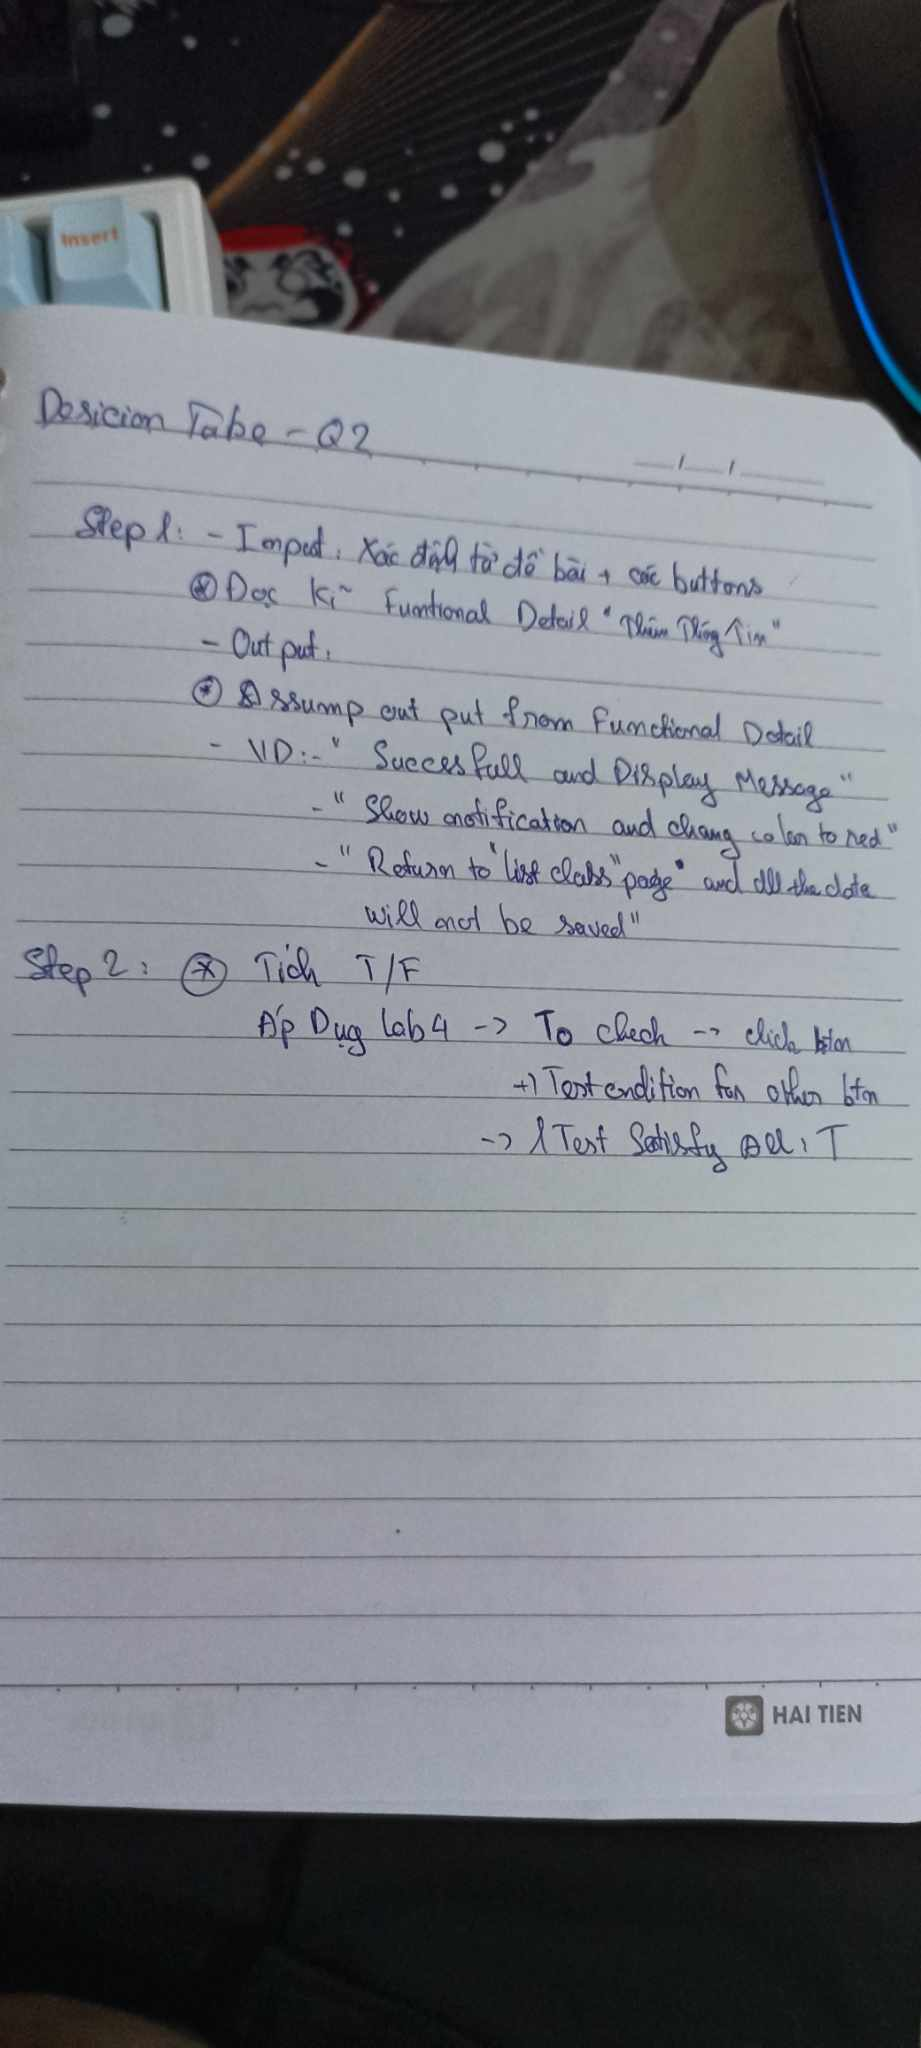 Insert
Desicion Tabe - Q2
Step 1: - Input: Xác định từ đề bài + các buttons
⊛ Đọc kĩ Funtional Detail "Thêm Thông Tin"
- Out put:
⊛ Assump out put from Functional Detail
- VD: - " Succesfull and Display Message"
- " Show notification and chang color to red"
- " Return to "list class" page" and all the data
will not be saved"
Step 2: ⊛ Tích T/F
Áp Dụg lab 4 -> To check -> click btn
+) Test condition for other btn
-> 1 Test Satisfy All: T
HAI TIEN